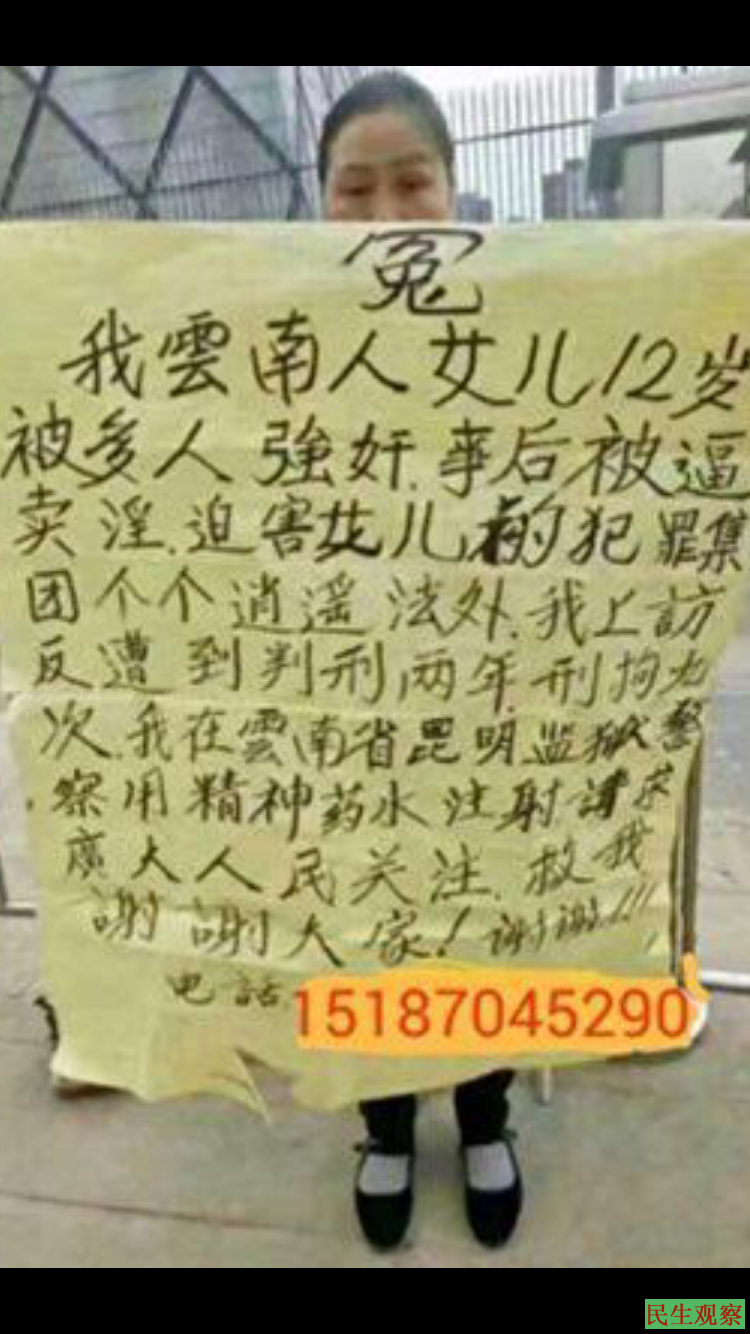 冤
我雲南人女儿12岁
被多人強奸.事后被逼
卖淫.迫害女儿的犯罪集
团个个逍遥法外.我上訪
反遭到判刑两年.刑拘九
次.我在雲南省昆明监狱警
察用精神药水注射请求
廣大人民关注.救我
謝謝大家!謝謝!!!
电話 15187045290
民生观察